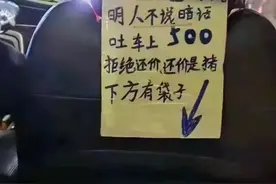 明人不说暗话
吐车上500
拒绝还价,还价是猪
下方有袋子